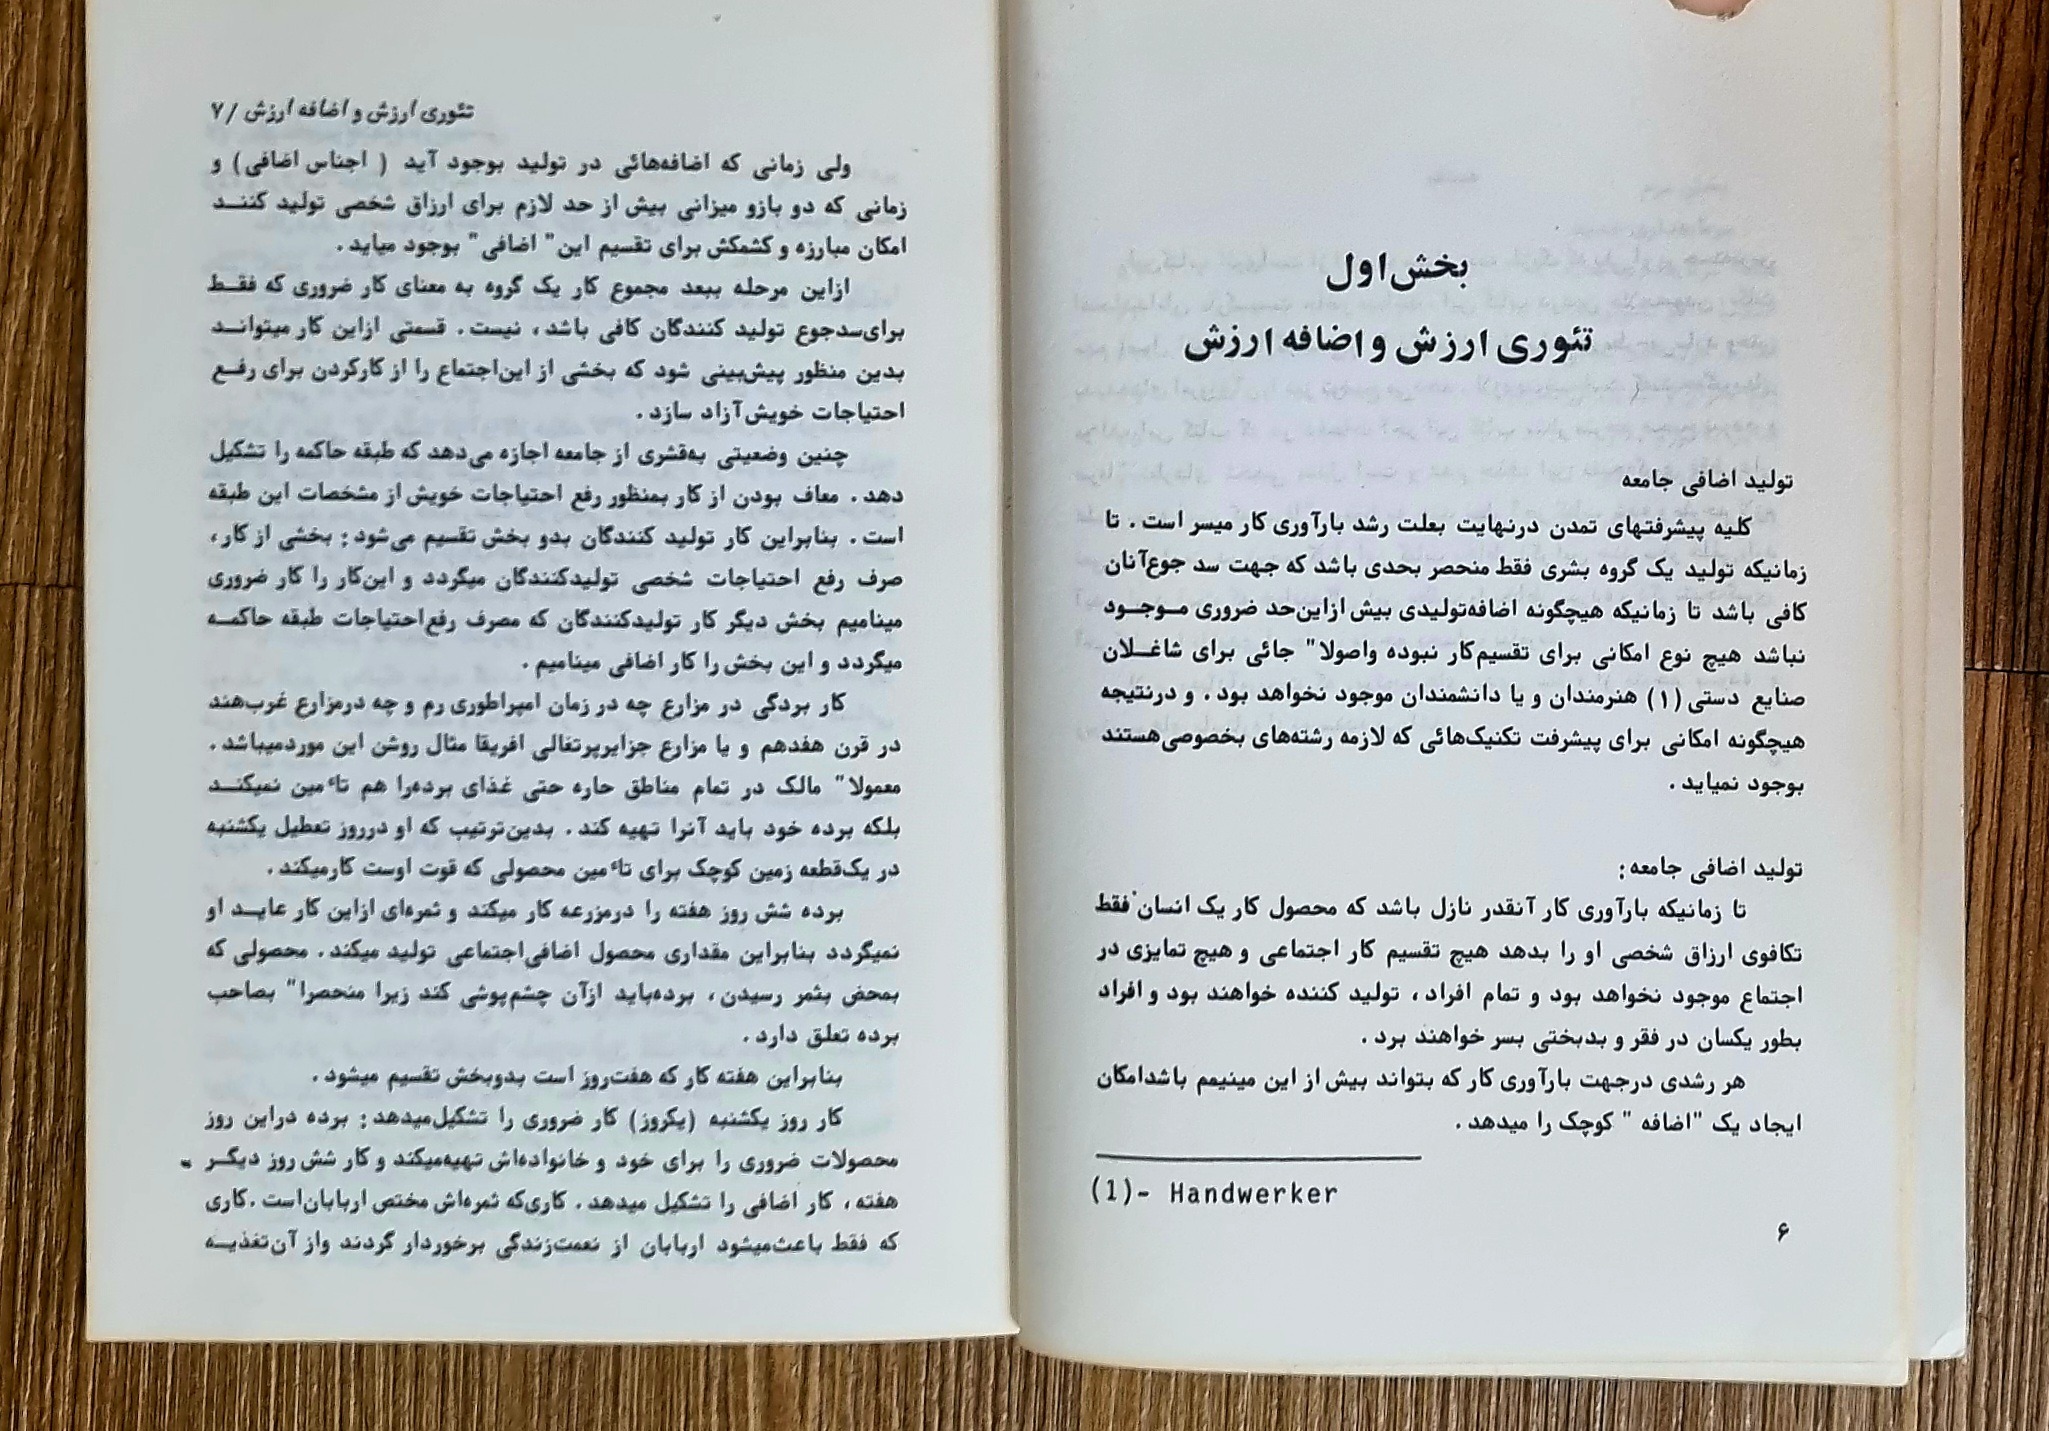 بخش اول
تئوری ارزش و اضافه ارزش
تولید اضافی جامعه
کلیه پیشرفتهای تمدن درنهایت بعلت رشد بارآوری کار میسر است . تا
زمانیکه تولید یک گروه بشری فقط منحصر بحدی باشد که جهت سد جوع‌آنان
کافی باشد تا زمانیکه هیچگونه اضافه‌تولیدی بیش ازاین‌حد ضروری موجود
نباشد هیچ نوع امکانی برای تقسیم‌کار نبوده واصولا" جائی برای شاغلان
صنایع دستی (۱) هنرمندان و یا دانشمندان موجود نخواهد بود . و درنتیجه
هیچگونه امکانی برای پیشرفت تکنیک‌هائی که لازمه رشته‌های بخصوصی‌هستند
بوجود نمیاید .
تولید اضافی جامعه :
تا زمانیکه بارآوری کار آنقدر نازل باشد که محصول کار یک انسان فقط
تکافوی ارزاق شخصی او را بدهد هیچ تقسیم کار اجتماعی و هیچ تمایزی در
اجتماع موجود نخواهد بود و تمام افراد ، تولید کننده خواهند بود و افراد
بطور یکسان در فقر و بدبختی بسر خواهند برد .
هر رشدی درجهت بارآوری کار که بتواند بیش از این مینیمم باشدامکان
ایجاد یک "اضافه " کوچک را میدهد .
(1)- Handwerker
۶
تئوری ارزش و اضافه ارزش / ۷
ولی زمانی که اضافه‌هائی در تولید بوجود آید ( اجناس اضافی ) و
زمانی که دو بازو میزانی بیش از حد لازم برای ارزاق شخصی تولید کنند
امکان مبارزه و کشمکش برای تقسیم این" اضافی" بوجود میاید .
ازاین مرحله ببعد مجموع کار یک گروه به معنای کار ضروری که فقط
برای‌سدجوع تولید کنندگان کافی باشد ، نیست . قسمتی ازاین کار میتواند
بدین منظور پیش‌بینی شود که بخشی از این‌اجتماع را از کارکردن برای رفع
احتیاجات خویش‌آزاد سازد .
چنین وضعیتی به‌قشری از جامعه اجازه می‌دهد که طبقه حاکمه را تشکیل
دهد . معاف بودن از کار بمنظور رفع احتیاجات خویش از مشخصات این طبقه
است . بنابراین کار تولید کنندگان بدو بخش تقسیم می‌شود : بخشی از کار ،
صرف رفع احتیاجات شخصی تولیدکنندگان میگردد و این‌کار را کار ضروری
مینامیم بخش دیگر کار تولیدکنندگان که مصرف رفع‌احتیاجات طبقه حاکمه
میگردد و این بخش را کار اضافی مینامیم .
کار بردگی در مزارع چه در زمان امپراطوری رم و چه درمزارع غرب‌هند
در قرن هفدهم و یا مزارع جزایرپرتغالی افریقا مثال روشن این موردمیباشد .
معمولا" مالک در تمام مناطق حاره حتی غذای برده‌را هم تاٴمین نمیکند
بلکه برده خود باید آنرا تهیه کند . بدین‌ترتیب که او درروز تعطیل یکشنبه
در یک‌قطعه زمین کوچک برای تاٴمین محصولی که قوت اوست کارمیکند .
برده شش روز هفته را درمزرعه کار میکند و ثمره‌ای ازاین کار عاید او
نمیگردد بنابراین مقداری محصول اضافی‌اجتماعی تولید میکند . محصولی که
بمحض بثمر رسیدن ، برده‌باید ازآن چشم‌پوشی کند زیرا منحصرا" بصاحب
برده تعلق دارد .
بنابراین هفته کار که هفت‌روز است بدوبخش تقسیم میشود .
کار روز یکشنبه (یکروز) کار ضروری را تشکیل‌میدهد : برده دراین روز
محصولات ضروری را برای خود و خانواده‌اش تهیه‌میکند و کار شش روز دیگر
هفته ، کار اضافی را تشکیل میدهد . کاری‌که ثمره‌اش مختص اربابان‌است .کاری
که فقط باعث‌میشود اربابان از نعمت‌زندگی برخوردار گردند واز آن‌تغذیه